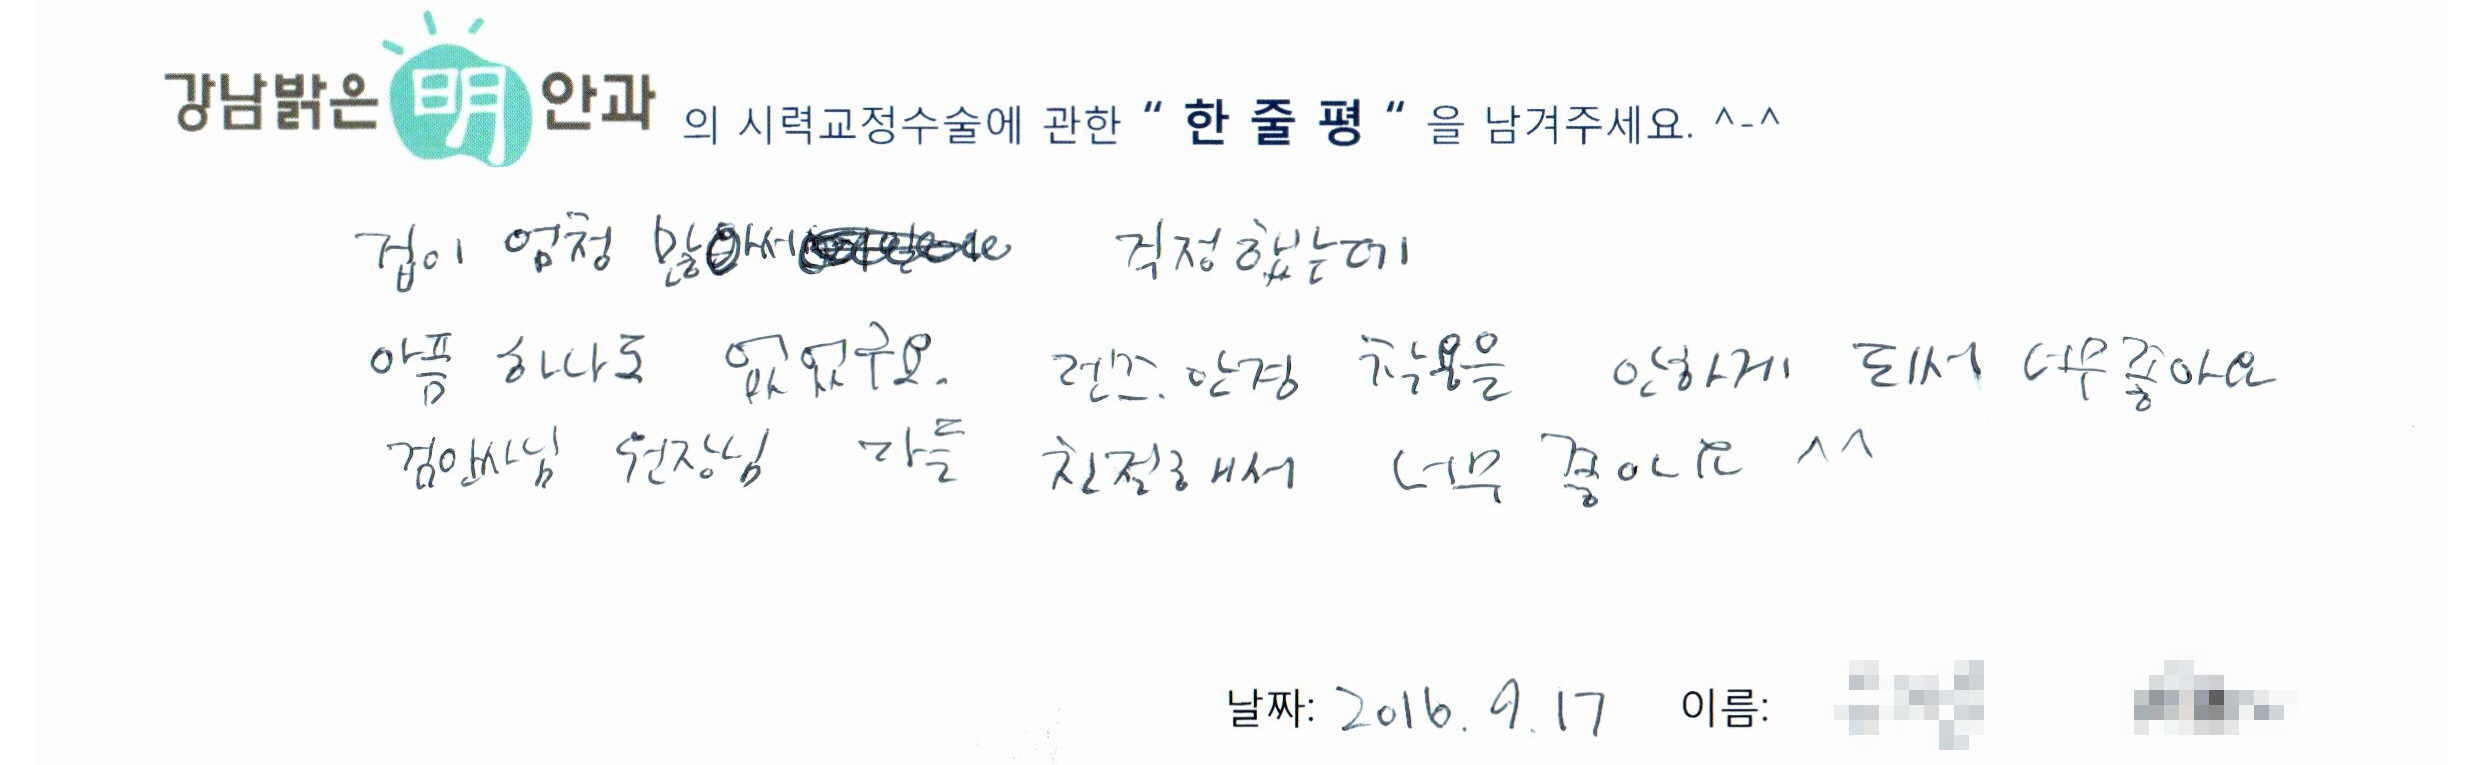 강남밝은明안과 의 시력교정수술에 관한 “ 한 줄 평 “ 을 남겨주세요. ^-^
겁이 엄청 많아서 걱정했는데
아픔 하나도 없었구요. 렌즈. 안경 착용을 안하게 되서 너무좋아요
검안사님 원장님 다들 친절해서 너무 좋아요 ^^
날짜: 2016. 9. 17 이름: